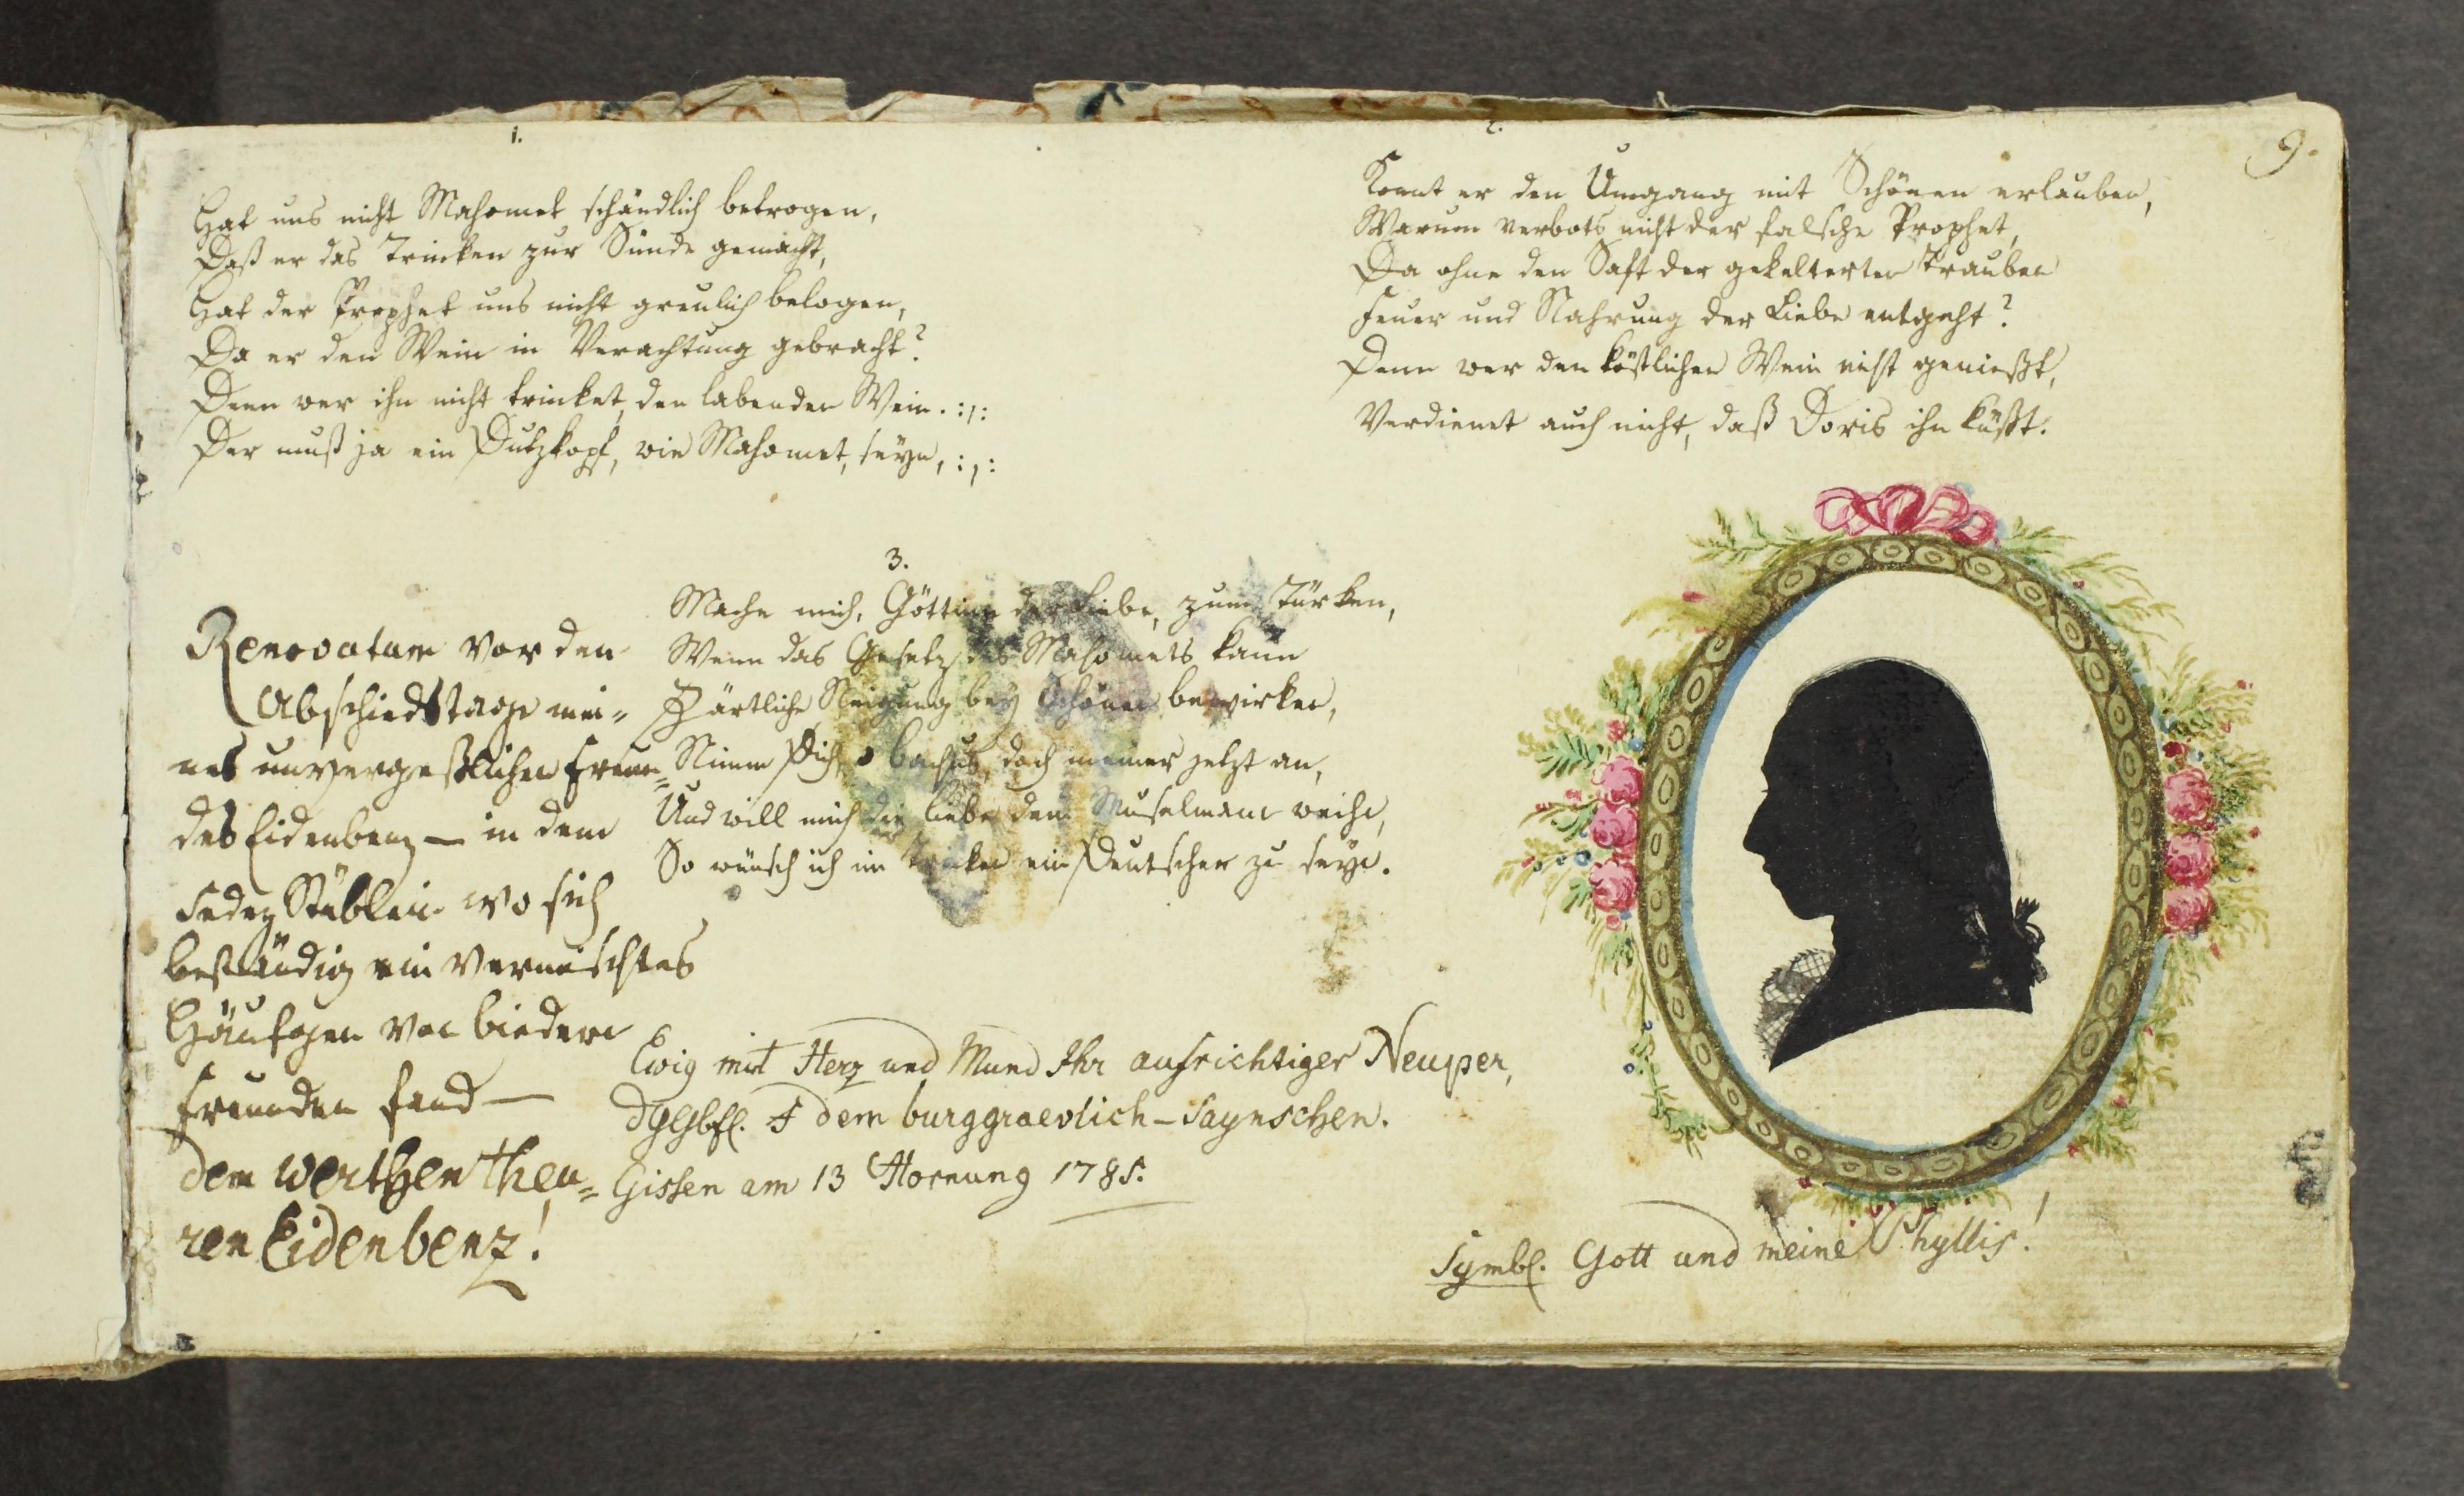 9.
1.
Hat uns nicht Mahomet schändlich betrogen,
Daß er das Trinken zur Sünde gemacht,
Hat der Prophet uns nicht greulich belogen,
Da er den Wein in Verachtung gebracht?
Denn wer ihn nicht trinket, den labenden Wein. :,:
Der muß ja ein Dutzkopf, wie Mahomet, seyn, :,:
2.
Konnt er den Umgang mit Schönen erlauben,
Warum verbots nicht der falsche Prophet,
Da ohne den Saft der gekelterten Trauben
Feuer und Nahrung der Liebe entgeht?
Denn wer den köstlichen Wein nicht genießt,
Verdienet auch nicht, daß Doris ihn küßt.
3.
Mache mich, Göttinn der Liebe, zum Türken,
Wenn das Gesetz des Mahomets kann
Zärtliche Neigung bey Schönen bewirken,
Nimm Dich, o Bachus, doch meiner jetzt an,
Und will mich die Liebe dem Muselmann weihn,
So wünsch ich im Trinken ein Deutscher zu seyn.
Renovatum vor den
Abschiedstage mei=
nes unvergeßlichen Freun=
des Eidenbenz — in dem
Stüblein wo sich
beständig ein vermischtes
Häufgen von biedern
Freunden fand —
dem werthen theu=
ren Eidenbenz!
Ewig mit Herz und Mund Ihr aufrichtiger Neuper,
dem burggraevlich-Saynschen.
Gissen am 13 Hornung 1785.
Symbl. Gott und meine Phyllis!